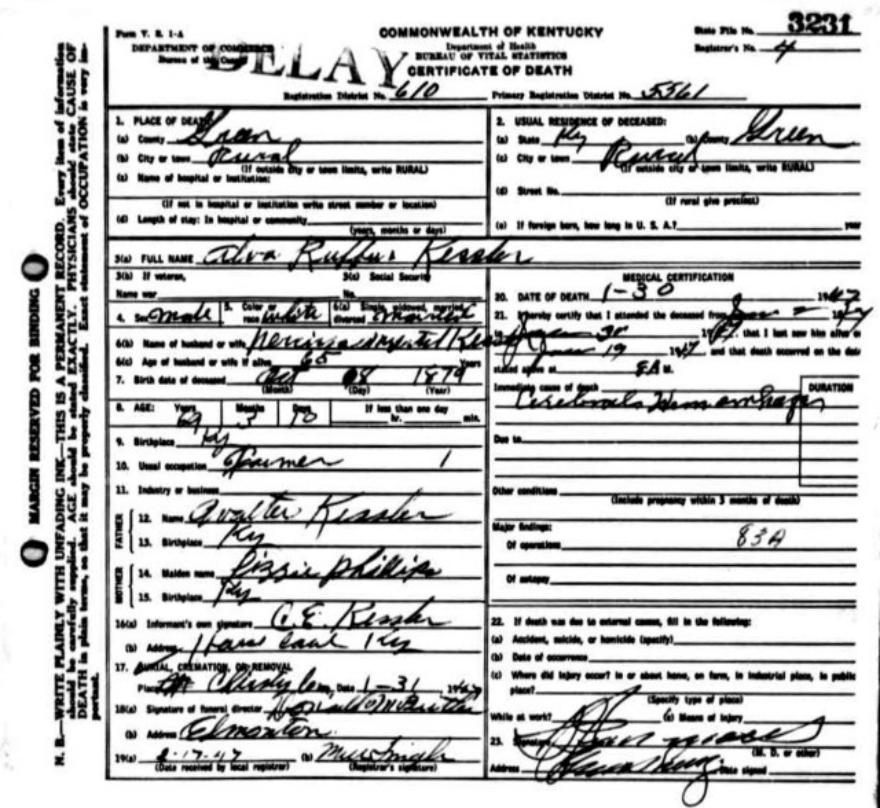 Form V. S. 1-A
COMMONWEALTH OF KENTUCKY
State File No. 3231
DEPARTMENT OF COMMERCE
Department of Health
Registrar's No. 4
Bureau of the Census
BUREAU OF VITAL STATISTICS
DELAY
CERTIFICATE OF DEATH
Registration District No. 610 Primary Registration District No. 5561
1. PLACE OF DEATH
(a) County Green
(b) City or town Rural
(If outside city or town limits, write RURAL)
(c) Name of hospital or institution:
(If not in hospital or institution write street number or location)
(d) Length of stay: In hospital or community
(years, months or days)
2. USUAL RESIDENCE OF DECEASED:
(a) State Ky (b) County Green
(c) City or town Rural
(If outside city or town limits, write RURAL)
(d) Street No.
(If rural give precinct)
(e) If foreign born, how long in U. S. A.? year
3(a) FULL NAME Alva Ruffus Kessler
3(b) If veteran, 3(c) Social Security
Name war No.
4. Sex male 5. Color or race white 6(a) Single, widowed, married, divorced married
6(b) Name of husband or wife Kessler
6(c) Age of husband or wife if alive 65
7. Birth date of deceased Oct 1879
(Month) (Day) (Year)
8. AGE: Years Months Days If less than one day
3 10 hr. min.
9. Birthplace Ky
10. Usual occupation Farmer 1
11. Industry or business
FATHER
12. Name Walter Kessler
13. Birthplace Ky
MOTHER
14. Maiden name Lizzie Phillips
15. Birthplace Ky
16(a) Informant's own signature Kessler
(b) Address Ky
17. BURIAL, CREMATION, OR REMOVAL
Place Christy Cem, Date 1-31, 1947
18(a) Signature of funeral director
(b) Address Edmonton
19(a) 2-17-47 (b)
(Date received by local registrar) (Registrar's signature)
MEDICAL CERTIFICATION
20. DATE OF DEATH 1-30 1947
21. I hereby certify that I attended the deceased from
to 1947, that I last saw him alive on
19 1947, and that death occurred on the date
stated above at 8A M.
Immediate cause of death DURATION
Cerebral Hemorrhage
Due to
Other conditions
(Include pregnancy within 3 months of death)
Major findings:
Of operations 83A
Of autopsy
22. If death was due to external causes, fill in the following:
(a) Accident, suicide, or homicide (specify)
(b) Date of occurrence
(c) Where did injury occur? In or about home, on farm, in industrial place, in public
place?
(Specify type of place)
While at work? (e) Means of injury
23. Signature
(M. D. or other)
Address Date signed
MARGIN RESERVED FOR BINDING
N. B.—WRITE PLAINLY WITH UNFADING INK—THIS IS A PERMANENT RECORD. Every item of information
should be carefully supplied. AGE should be stated EXACTLY. PHYSICIANS should state CAUSE OF
DEATH in plain terms, so that it may be properly classified. Exact statement of OCCUPATION is very im-
portant.